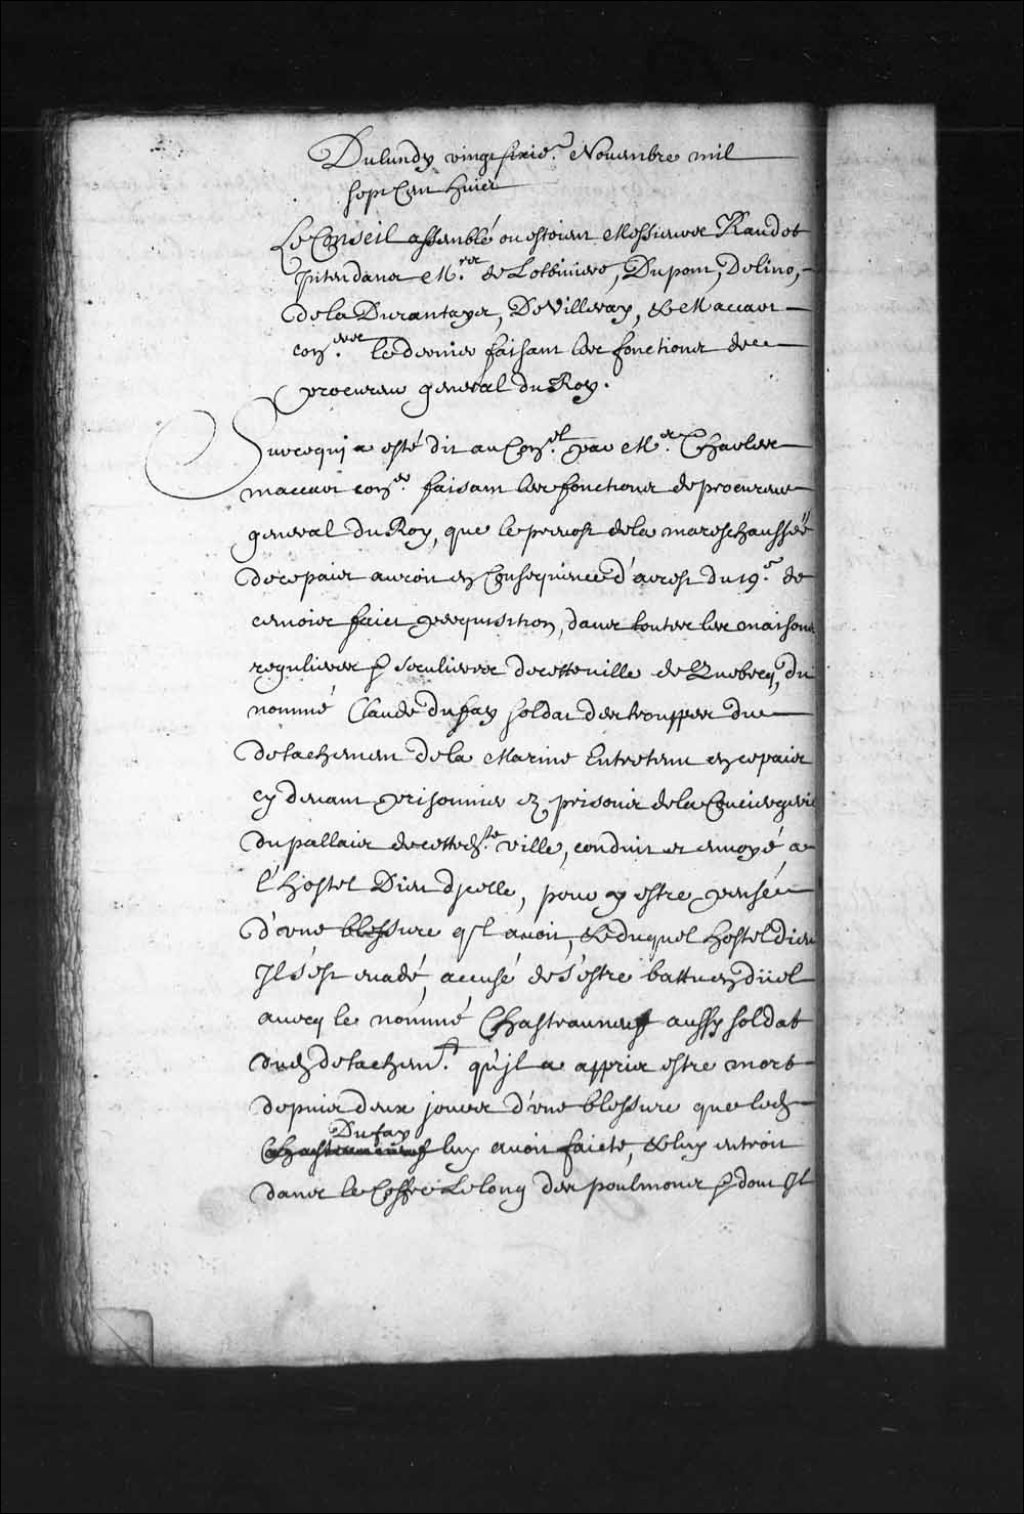 Du lundy vingt sixie.^e Novembre mil
sept Cent huict
Le Conseil assemblé ou estoient Messieurs Raudot
Intendant M.^rs de Lotbiniere, Dupont, Delino,
de la Durantaye, De Villeray, & Macart
con.^ers le dernier faisant les fonctions de
procureur general du Roy.
Sur ce qui a esté dit au Con.^el par M.^e Charles
macart con.^er faisant les fonctions de procureur
general du Roy, que le prevost de la mareschaussée
de ce pais auroit en Consequence d'arrest du 19.^e de
ce mois faict perquisition, dans toutes les maisons
regulieres & seculieres de cette ville de Quebecq, du
nommé Claude dufay soldat des trouppes du
detachement de la Marine Entretenu en ce pais
cy devant prisonnier ez prisons de la Conciergerie
du pallais de cette d.^te ville, conduit et envoyé a
l'hostel Dieu d'jcelle, pour y estre pensé
d'une blessure q'l avoit, & duquel hostel dieu
Jl s'est evadé, accusé de s'estre battu en düel
avecq le nommé Chasteauneuf aussy soldat
dud detachem.^t qu'jl a appris estre mort
depuis deux jours d'une blessure que led
Dufay
Chasteauneuf luy avoit faicte, & luy entroit
dans le Coffre Le long des poulmons & dont Jl